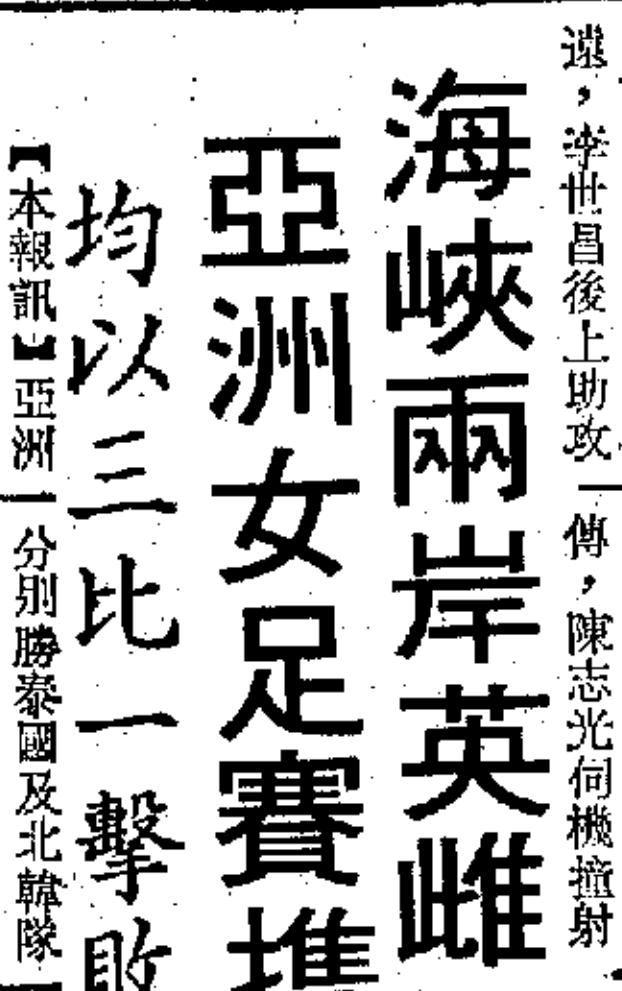 遠，李世昌後上助攻
傳，陳志光伺機撞射
海峽兩岸英雌
亞洲女足賽
均以三比一擊敗
【本報訊】亞洲
分别勝泰國及北韓隊